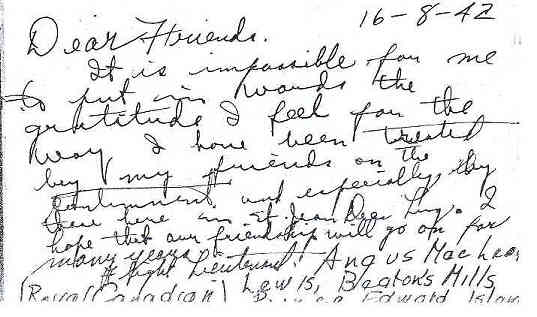 16-8-42
Dear Friends.
It is impossible for me
to put in words the
gratitude I feel for the
way I have been treated
by my friends on the
continent and especially by
those here in St. Jean De Luz. I
hope that our friendship will go on for
many years.
Flight Lieutenant Angus MacLean
(Royal Canadian) Lewis, Beaton's Mills,
Edward Islan